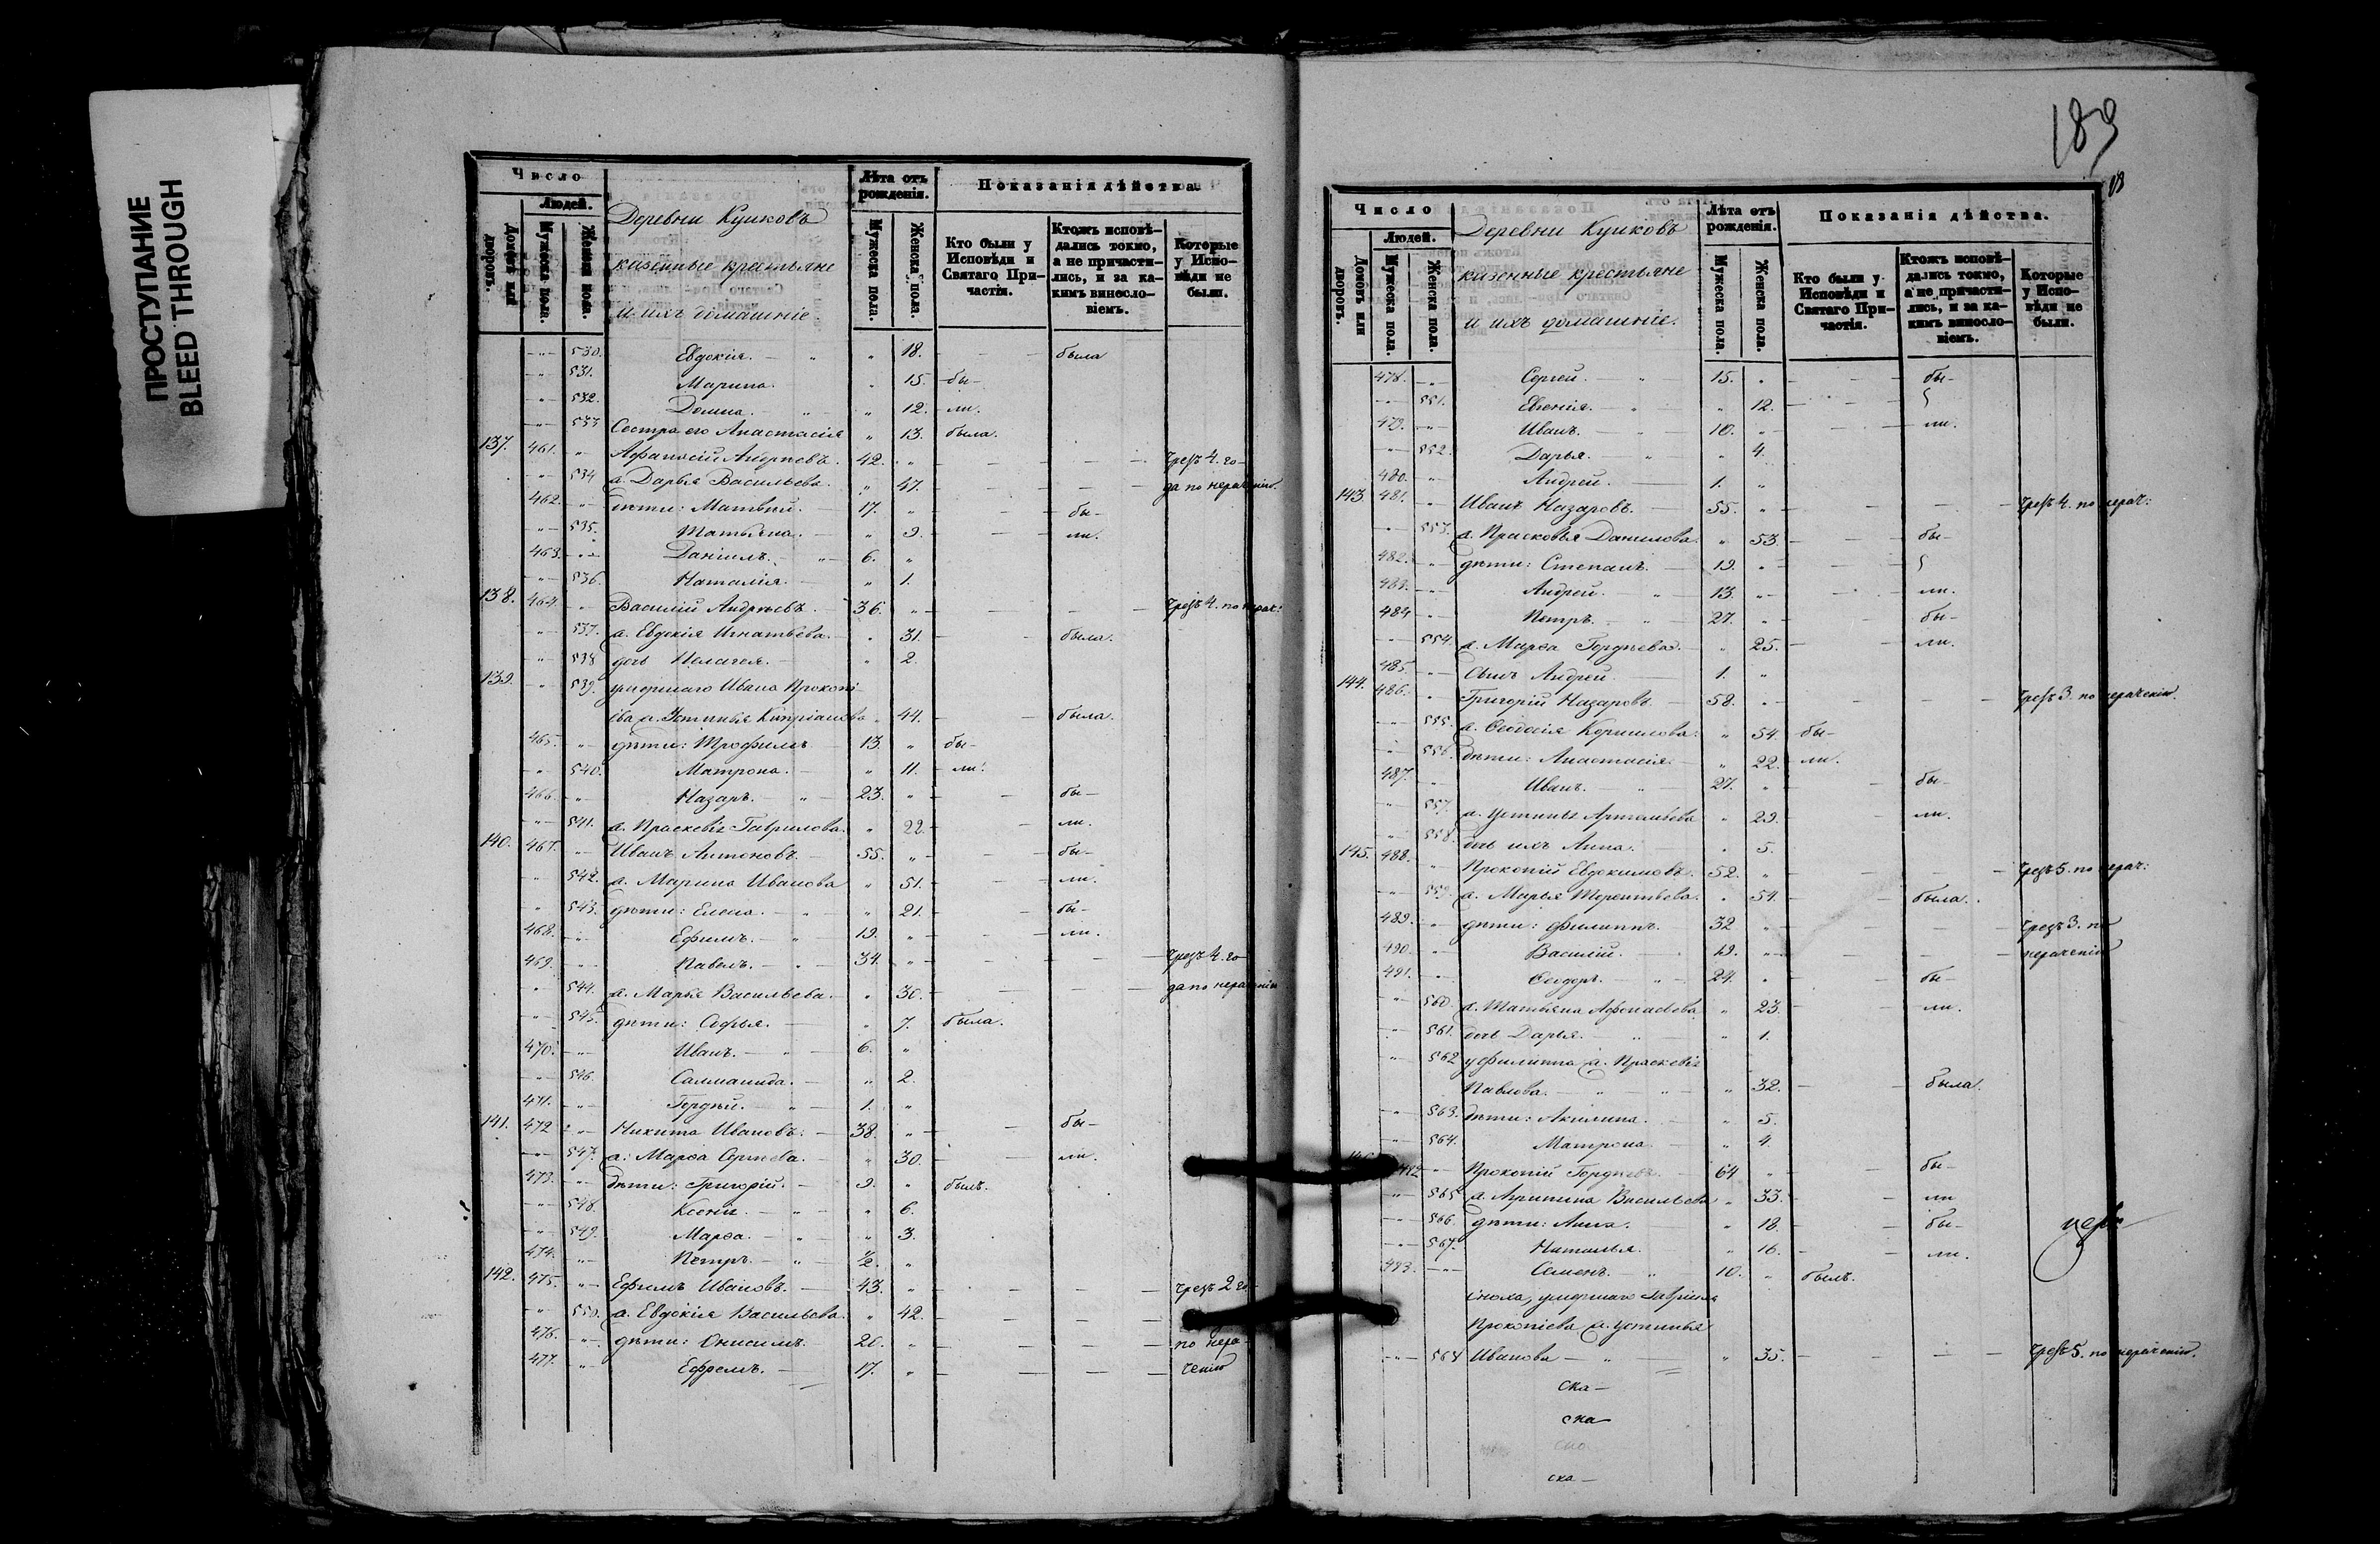 ПРОСТУПАНИЕ
BLEED THROUGH
Число
Людей.
Домовъ или дворовъ.
Мужеска пола.
Женска пола.
Деревни Куликовъ
казенные крестьяне
и ихъ домашніе.
Лѣта отъ рожденія.
Мужеска пола.
Женска пола.
Показанія дѣйства.
Кто были у Исповѣди и Святаго Причастія.
Ктожъ исповѣдались токмо, а не причастились, и за какимъ винословіемъ.
Которые у Исповѣди не были.
530. Евдокія. 18. была
531. Марина. 15. бы-
532. Домна. 12. ли.
533 Сестра его Анастасія 13. была.
137. 461. Афанасій Андреевъ. 42. чрезъ 4. го-
534 а. Дарья Васильева. 47. да по нераченію.
462. дѣти: Матвѣй. 17. бы-
535. Татьяна. 9. ли.
463. Даніилъ. 6.
536. Наталія. 1.
138. 464. Василій Андреевъ. 36. чрезъ 4. по нерач:
537. а. Евдокія Игнатьева. 31. была.
538 дочь Пелагея. 2.
139. 539. умершаго Ивана Прокопі-
ева а. Устинья Кипріанова 44. была.
465. дѣти: Трофимъ 13. бы-
540. Матрона. 11. ли.
466. Назаръ. 23. бы-
541. а. Праскевія Гаврилова. 22. ли.
140. 467. Иванъ Антоновъ. 55. бы-
542. а. Марина Иванова 51. ли.
543. дѣти: Елена. 21. бы-
468. Ефимъ. 19. ли.
469. Павелъ. 34. чрезъ 4. го-
544. а. Марья Васильева. 30. да по нераченію
545. дѣти: Софья. 7. была.
470. Иванъ. 6.
546. Саломанида. 2.
471. Гордѣй. 1.
141. 472 Никита Ивановъ. 38. бы-
547. а: Марѳа Сергѣева. 30. ли.
473. дѣти: Григорій. 9. былъ.
548. Ксенія. 6.
549. Марѳа. 3.
474. Петръ. ½.
142. 475. Ефимъ Ивановъ. 43. чрезъ 2 го-
550. а. Евдокія Васильева. 42.
476. дѣти: Онисимъ. 20. по нера-
477. Ефремъ. 17. ченію
189
Число
Людей.
Домовъ или дворовъ.
Мужеска пола.
Женска пола.
Деревни Куликовъ
казенные крестьяне
и ихъ домашніе.
Лѣта отъ рожденія.
Мужеска пола.
Женска пола.
Показанія дѣйства.
Кто были у Исповѣди и Святаго Причастія.
Ктожъ исповѣдались токмо, а не причастились, и за какимъ винословіемъ.
Которые у Исповѣди не были.
478. Сергей. 15. бы-
551. Евгенія. 12.
479. Иванъ. 10. ли.
552. Дарья. 4.
480. Андрей. 1.
143. 481. Иванъ Назаровъ. 55. чрезъ 4. по нерач:
553. а. Прасковья Данилова. 53. бы-
482. дѣти: Степанъ. 19.
483. Андрей. 13. ли.
484 Петръ. 27. бы-
554. а. Марѳа Гордѣева. 25. ли.
485. Сынъ Андрей. 1.
144. 486. Григорій Назаровъ. 58. чрезъ 3. по нераченію.
555. а. Ѳеодосія Корнилова. 54. бы-
556. дѣти: Анастасія. 22. ли.
487. Иванъ. 27. бы-
557. а. Устинья Артемьева 29. ли.
558. дочь ихъ Анна. 5.
145. 488. Прокопій Евдокимовъ. 52. чрезъ 5. по нерач:
559. а. Марья Терентьева. 54. была.
489. дѣти: Филиппъ. 32 чрезъ 3. по
490. Василій. 19. нераченію
491. Ѳеодоръ. 24. бы-
560. а. Татьяна Афонасьева 23. ли.
561. дочь Дарья. 1.
562 у Филиппа а. Праскевія
Павлова. 32. была.
563. дѣти: Акилина. 5.
564. Матрона. 4.
492 Прокопій Гордѣевъ. 64 бы-
565 а. Агрипина Васильева 33. ли
566. дѣти: Анна. 18. бы-
567. Наталья. 16. ли.
493. Семенъ. 10. былъ.
сноха, умершаго Гавріила
Прокопіева а. Устинья
568 Иванова 35. чрезъ 5. по нераченію.
ска-
ска
ска-